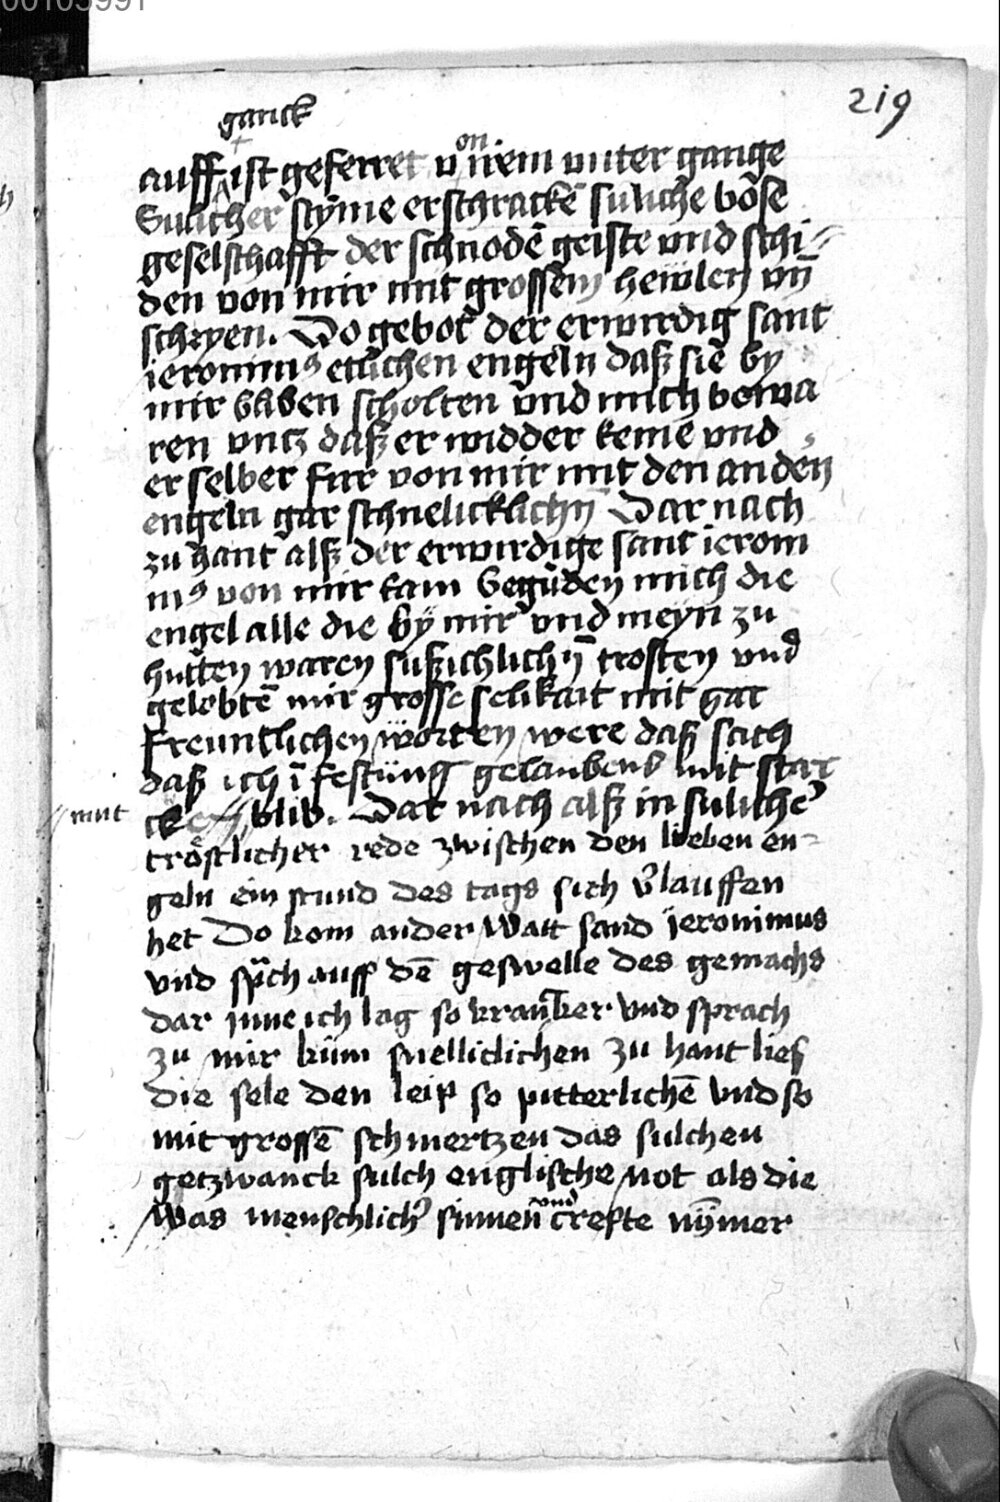 00105991
219
ganck
auff ist geferret von irem vnter gange
Sulicher stӱme erschrackē suliche bőse
geselschafft der schnodē geiste vnd schi⸗
den von mir mit grossem hewlen vn̄
schryen. Do gebot der erwirdig sant
ieronim9 etlichen engeln daß sie by
mir bliben scholten vnd mich bewa
ren vntz daß er widder keme vnd
er selber fur von mir mit den anden
engeln gar schnelicklichn̄ Dar nach
zu hant alß der erwirdige sant ieroni
m9 von mir kam begűden mich die
engel alle die bÿ mir vnd meyn zu
hutten waren sußichlichn̄ trosten vnd
gelobtē mir grosse selikait mit gar
freuntlichen worten were daß sach
daß ich ī festüng gelaubens mit star
mut
cken blib. Dar nach alß in sulicher
tröstlicher rede zwischen den lieben en⸗
geln ein stund des tags sich v̓lauffen
het Do kom ander watt sand jeronimus
vnd sp̈ch auff dē geswelle des gemachs
dar jnne ich lag so krancker vnd sprach
zu mir küm snelliclichen zu hant lies
die sele den leip so pitterlichē vnd so
mit grossē schmertzen das sulchen
getzwanck sulch englische not als die
was menschlich̓ sinnen vnd crefte nȳmer